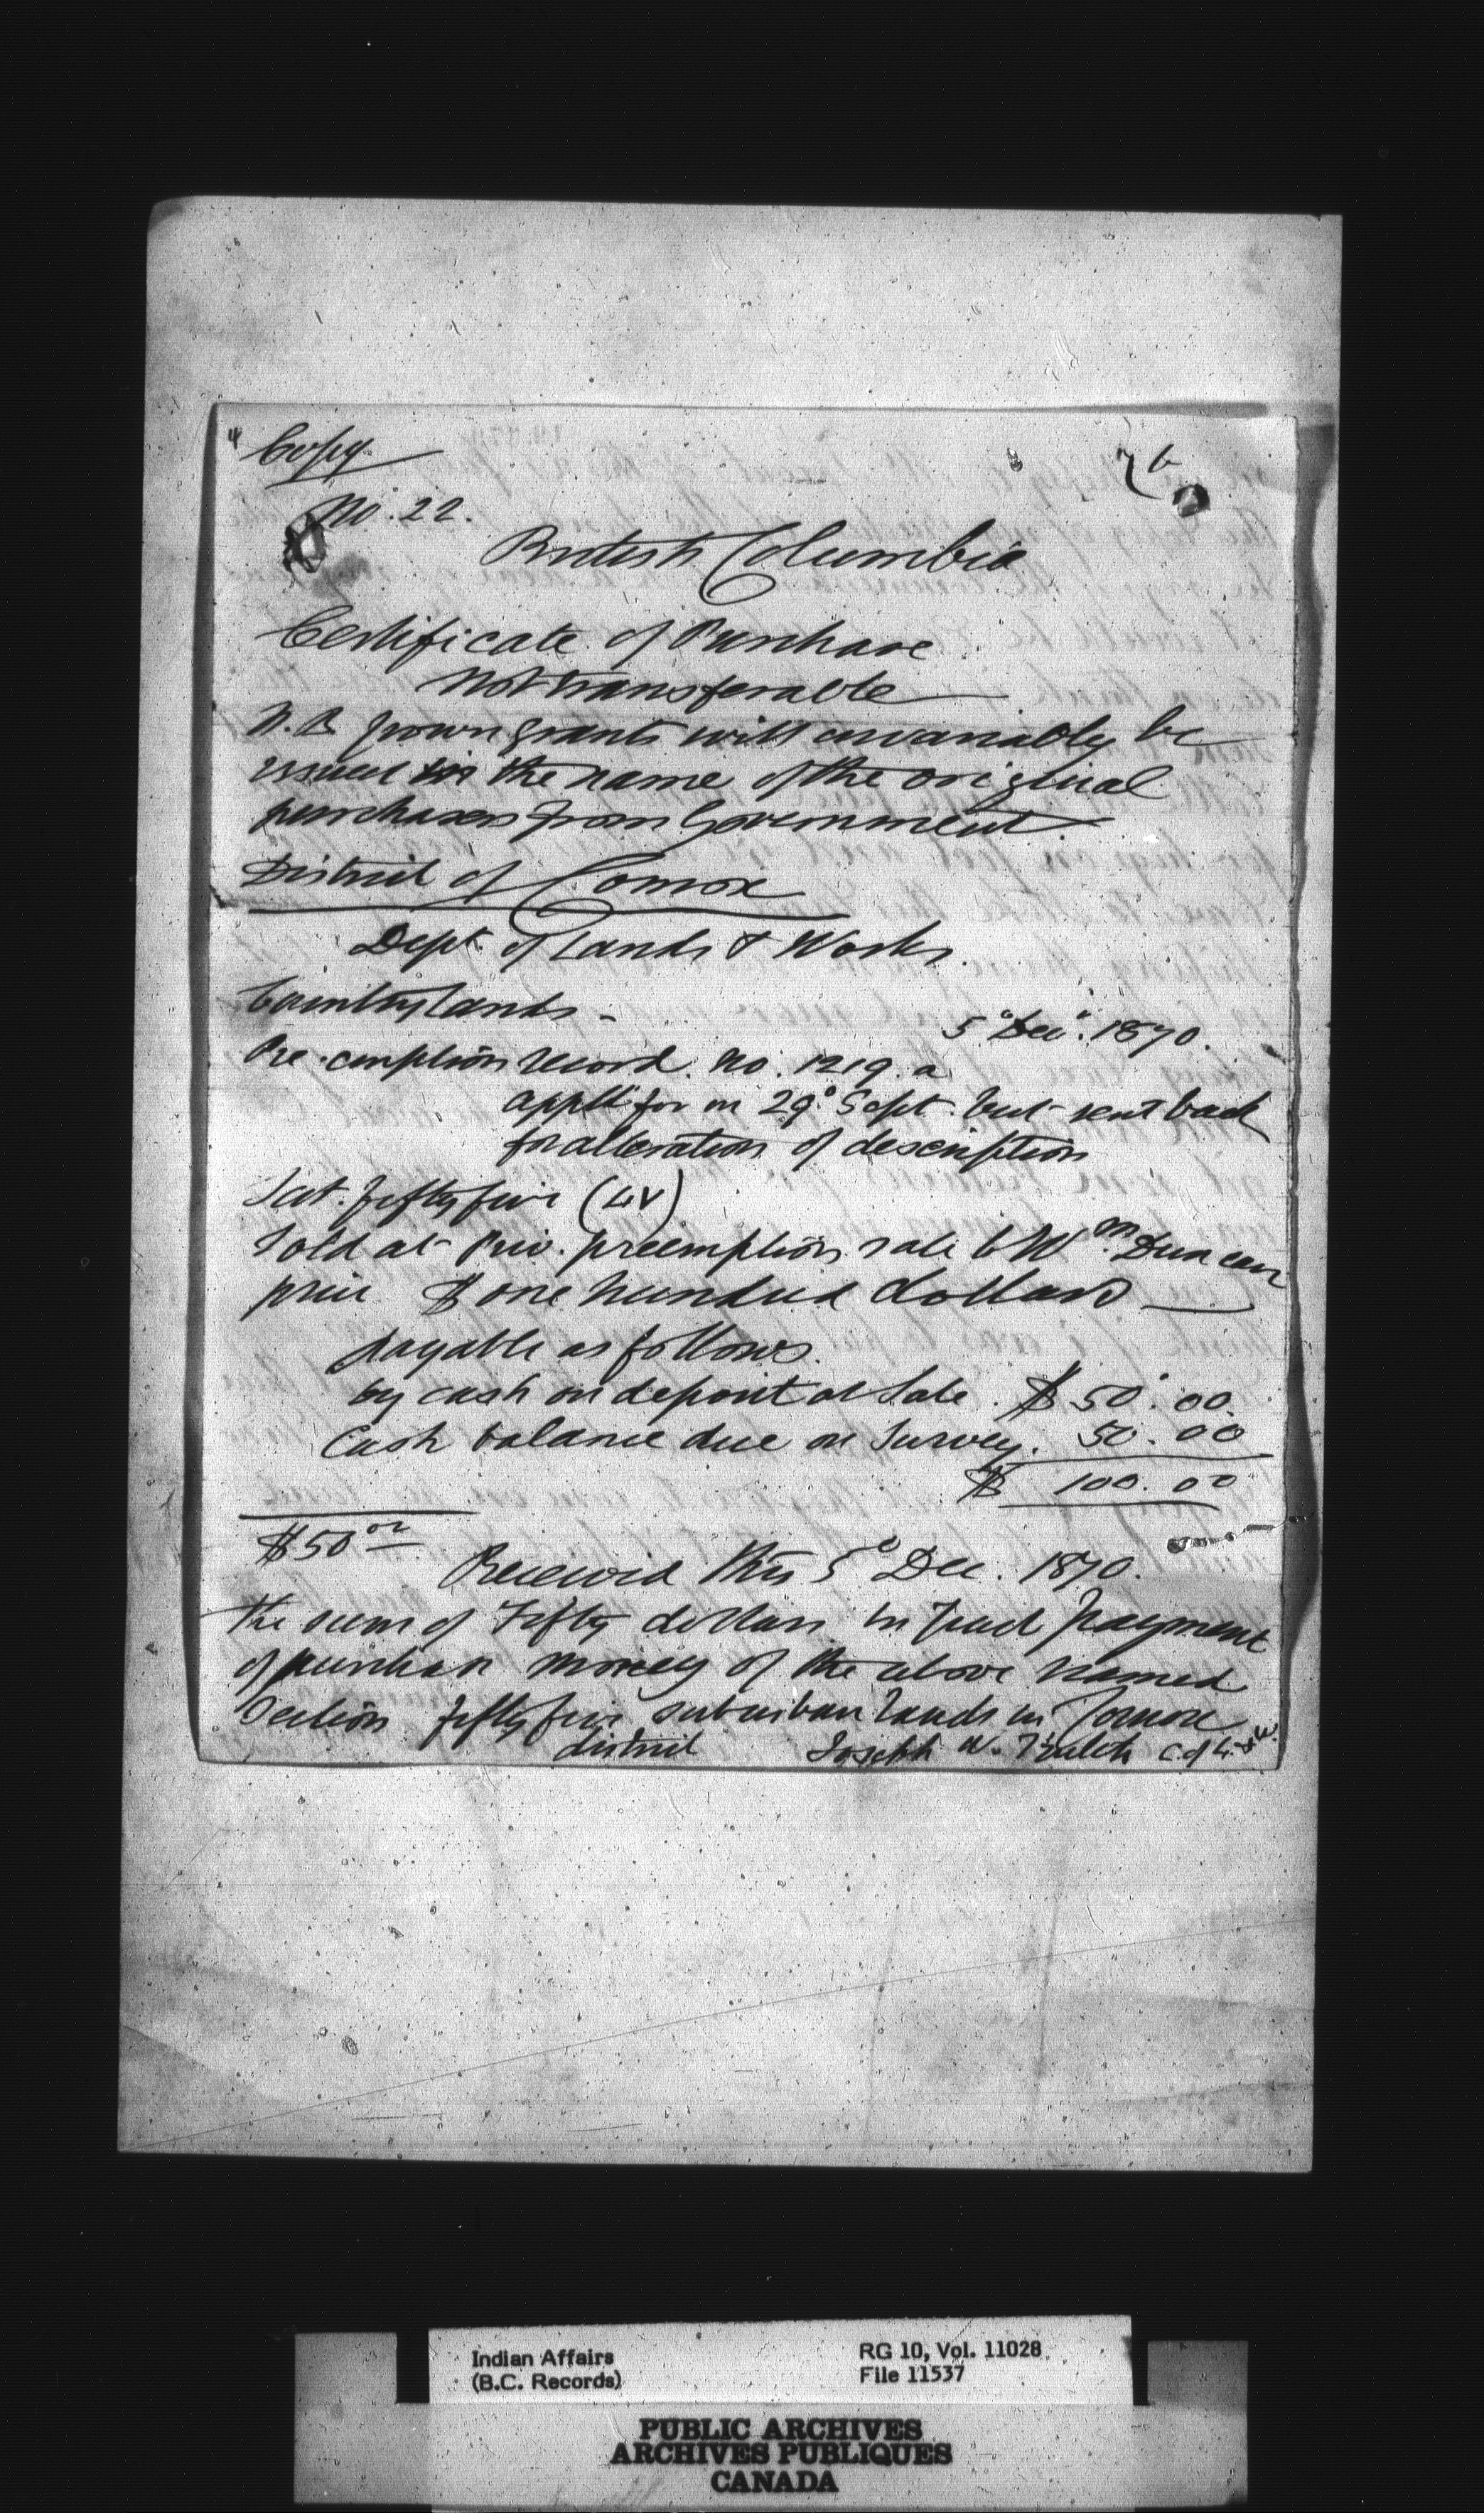 Copy
No. 22.
British Columbia
Certificate of Purchase
Not transferable
N.B. Crown grants will invariably be
issued in the name of the original
purchasers from Government.
District of Comox
Dept. of Lands & Works.
Country Lands -
5° Dec. 1870.
Pre-emption record. No. 1219. a
appld for on 29° Sept. but sent back
for alteration of description
Sect. fifty five (LV)
Sold at Priv. preemption sale to Wm Duncan
price $ one hundred dollars
payable as follows.
by cash on deposit at Sale. $ 50.00.
Cash balance due on Survey. 50.00
$ 100.00
$50.00
Received this 5° Dec. 1870.
the sum of Fifty dollars in part payment
of purchase money of the above named
Section fifty five suburban lands in Comox
district Joseph W. Trutch C. of L. & W.
Indian Affairs
(B.C. Records)
RG 10, Vol. 11028
File 11537
PUBLIC ARCHIVES
ARCHIVES PUBLIQUES
CANADA